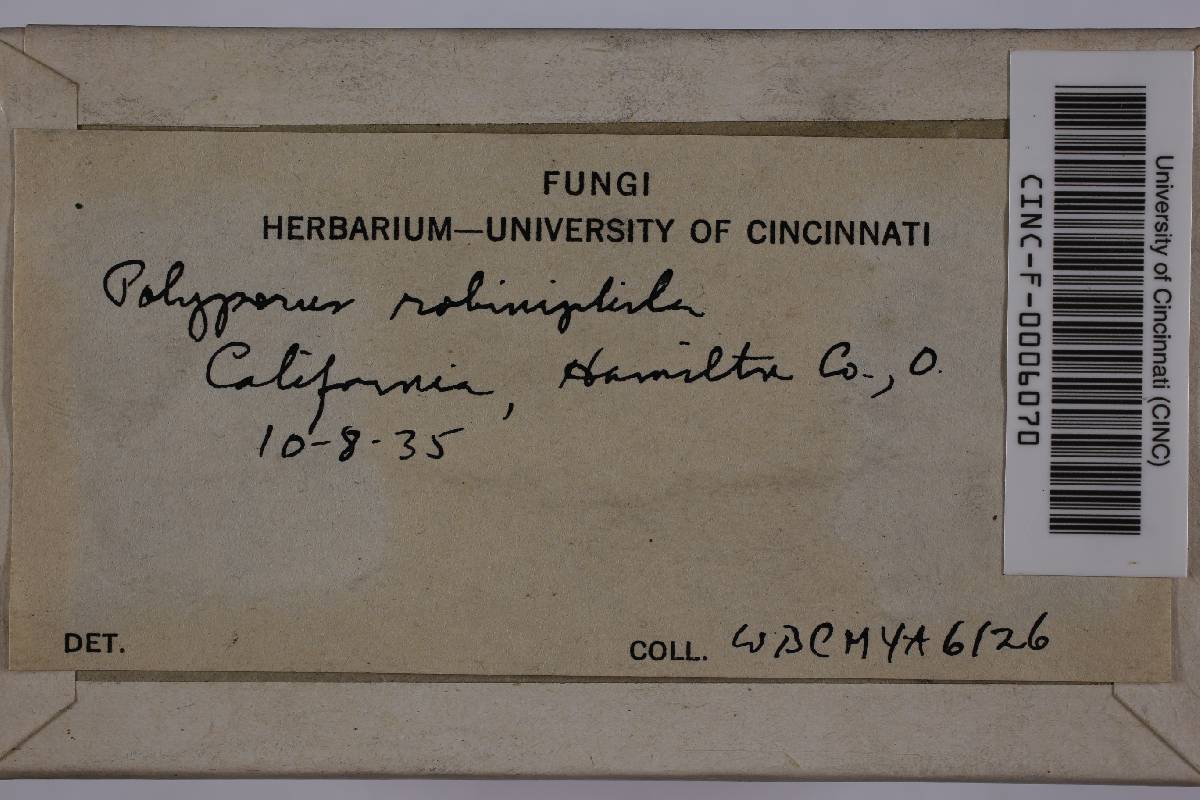 FUNGI
HERBARIUM—UNIVERSITY OF CINCINNATI
Polyporus robiniphila
California, Hamilton Co., O.
10-8-35
DET.
COLL. WBCMYA6126
CINC-F-0006070
University of Cincinnati (CINC)